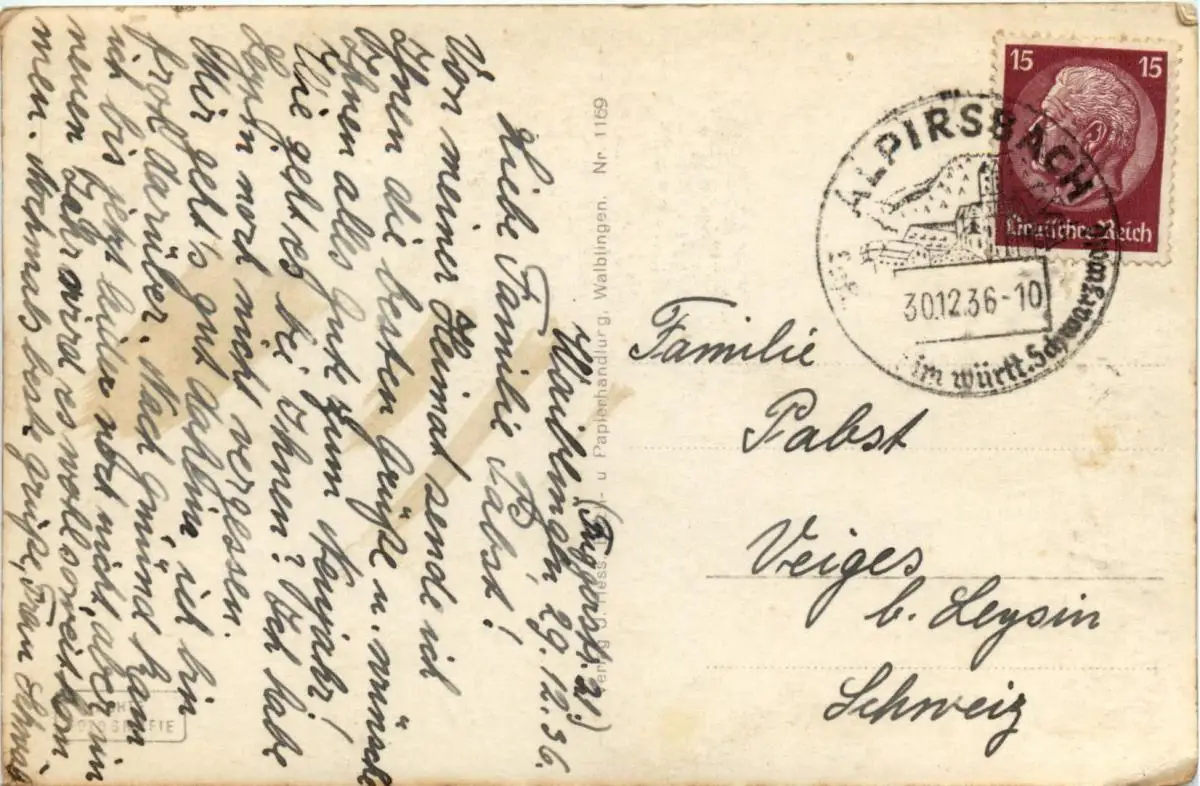 Waiblingen, 29.12.36.
Liebe Familie Pabst!
Von meiner Heimat sende ich
Ihnen die besten Grüße u. wünsche
Ihnen alles Gute zum Neujahr!
Wie geht es bei Ihnen? Ich habe
Leysin noch nicht vergessen.
Mir geht's gut daheim, ich bin
froh darüber. Nach Gmünd kam
ich bis jetzt leider noch nicht, aber im
neuen Jahr wird es wohl soweit kom
men. Nochmals beste Grüße, Fam.
Papierhandlung, Waiblingen. Nr. 1169
Familie
Pabst
Veiges
b. Leysin
Schweiz
15 15
Deutsches Reich
ALPIRSBACH
30.12.36-10
im württ. Schwarzwald